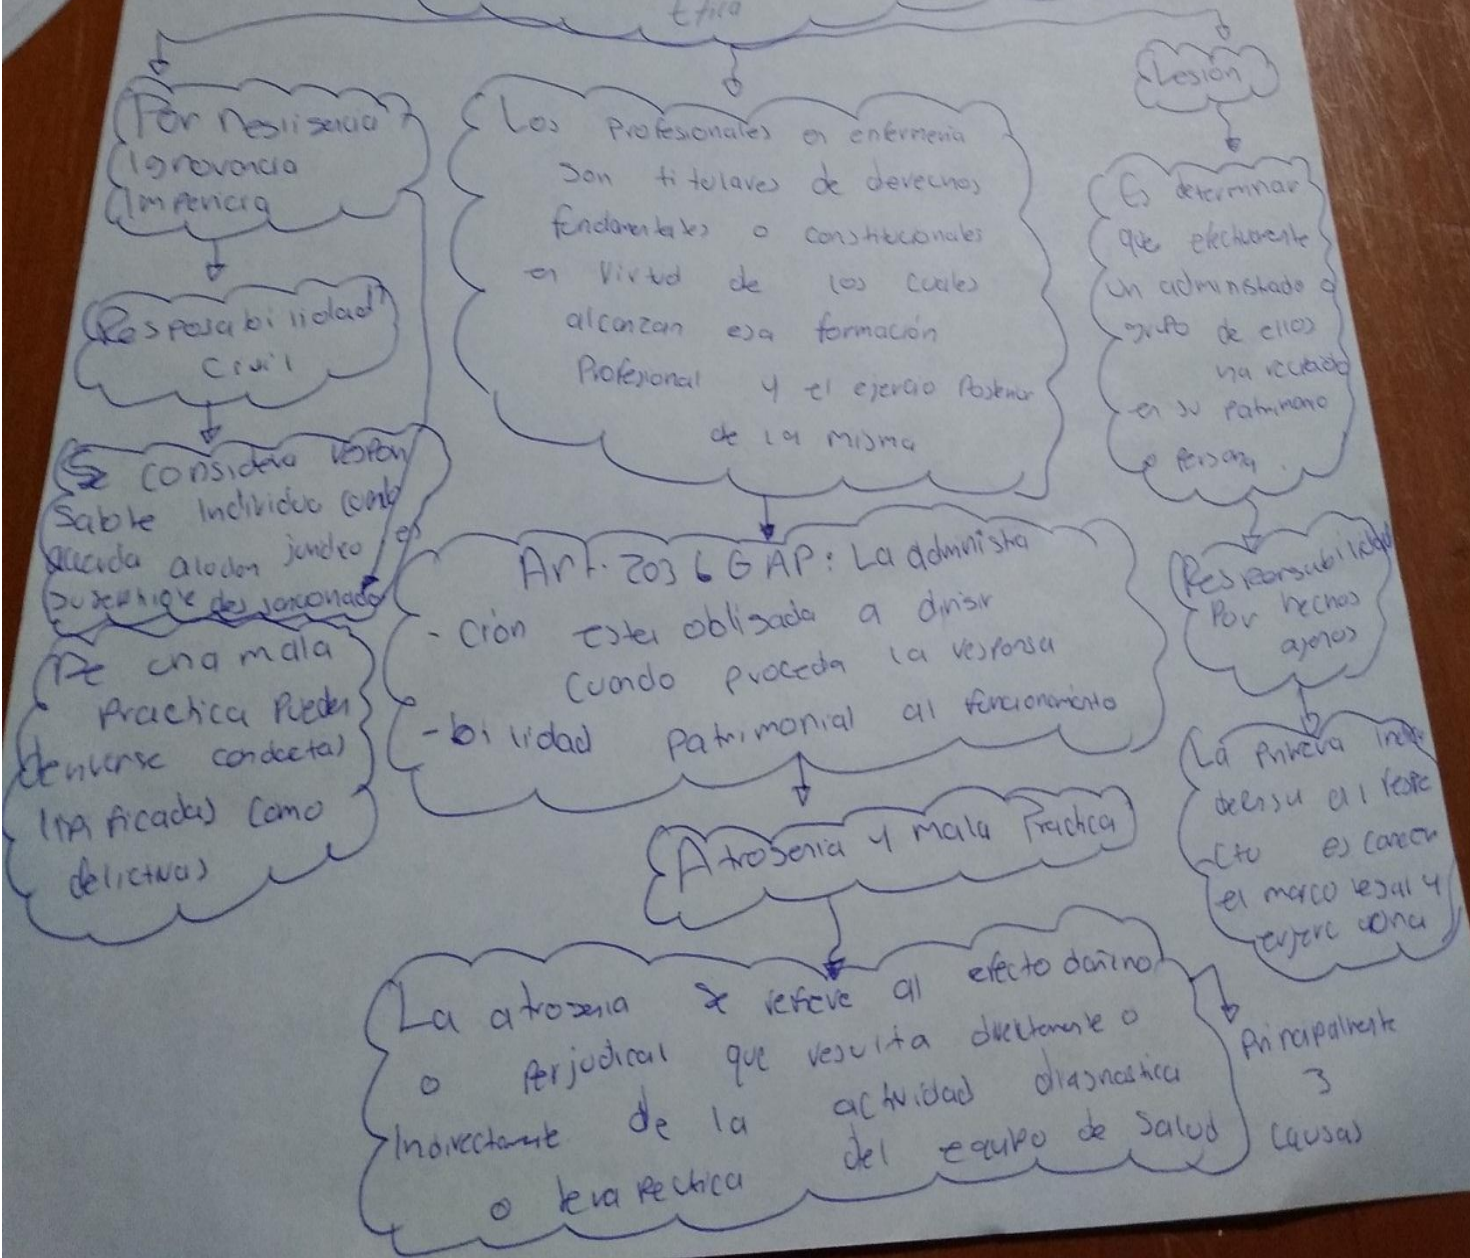 Etica
Por neslisencia
Ignorancia
Impericia
Resposabilidad
Civil
Se considera respon
sable Individuo comb
jundico es
De una mala
practica Pueden
derivarse conductas
tipificadas como
delictivas
Los Profesionales en enfermeria
son titulares de derechos
fundamentales o constitucionales
en virtud de los cuales
alcanzan esa formación
Profesional y el ejercio Posterior
de la misma
Art. 203 L G AP: La administra
- ción esta oblisada a dirisir
cuando proceda la responsa
- bilidad patrimonial al funcionamiento
Atrosenia y mala Practica
La atrosenia se refiere al efecto dañino
o Perjudical que resulta directamente o
Indirectamente de la actividad diagnostica
o terapectica del equipo de salud
Principalmente
3
causas
Lesión
Es determinar
que efectivamente
un administrado o
grupo de ellos
ha recaido
en su patrimonio
o persona.
Responsabilidad
Por hechos
ajenos
La primera
al respe
cto es
el marco legal y